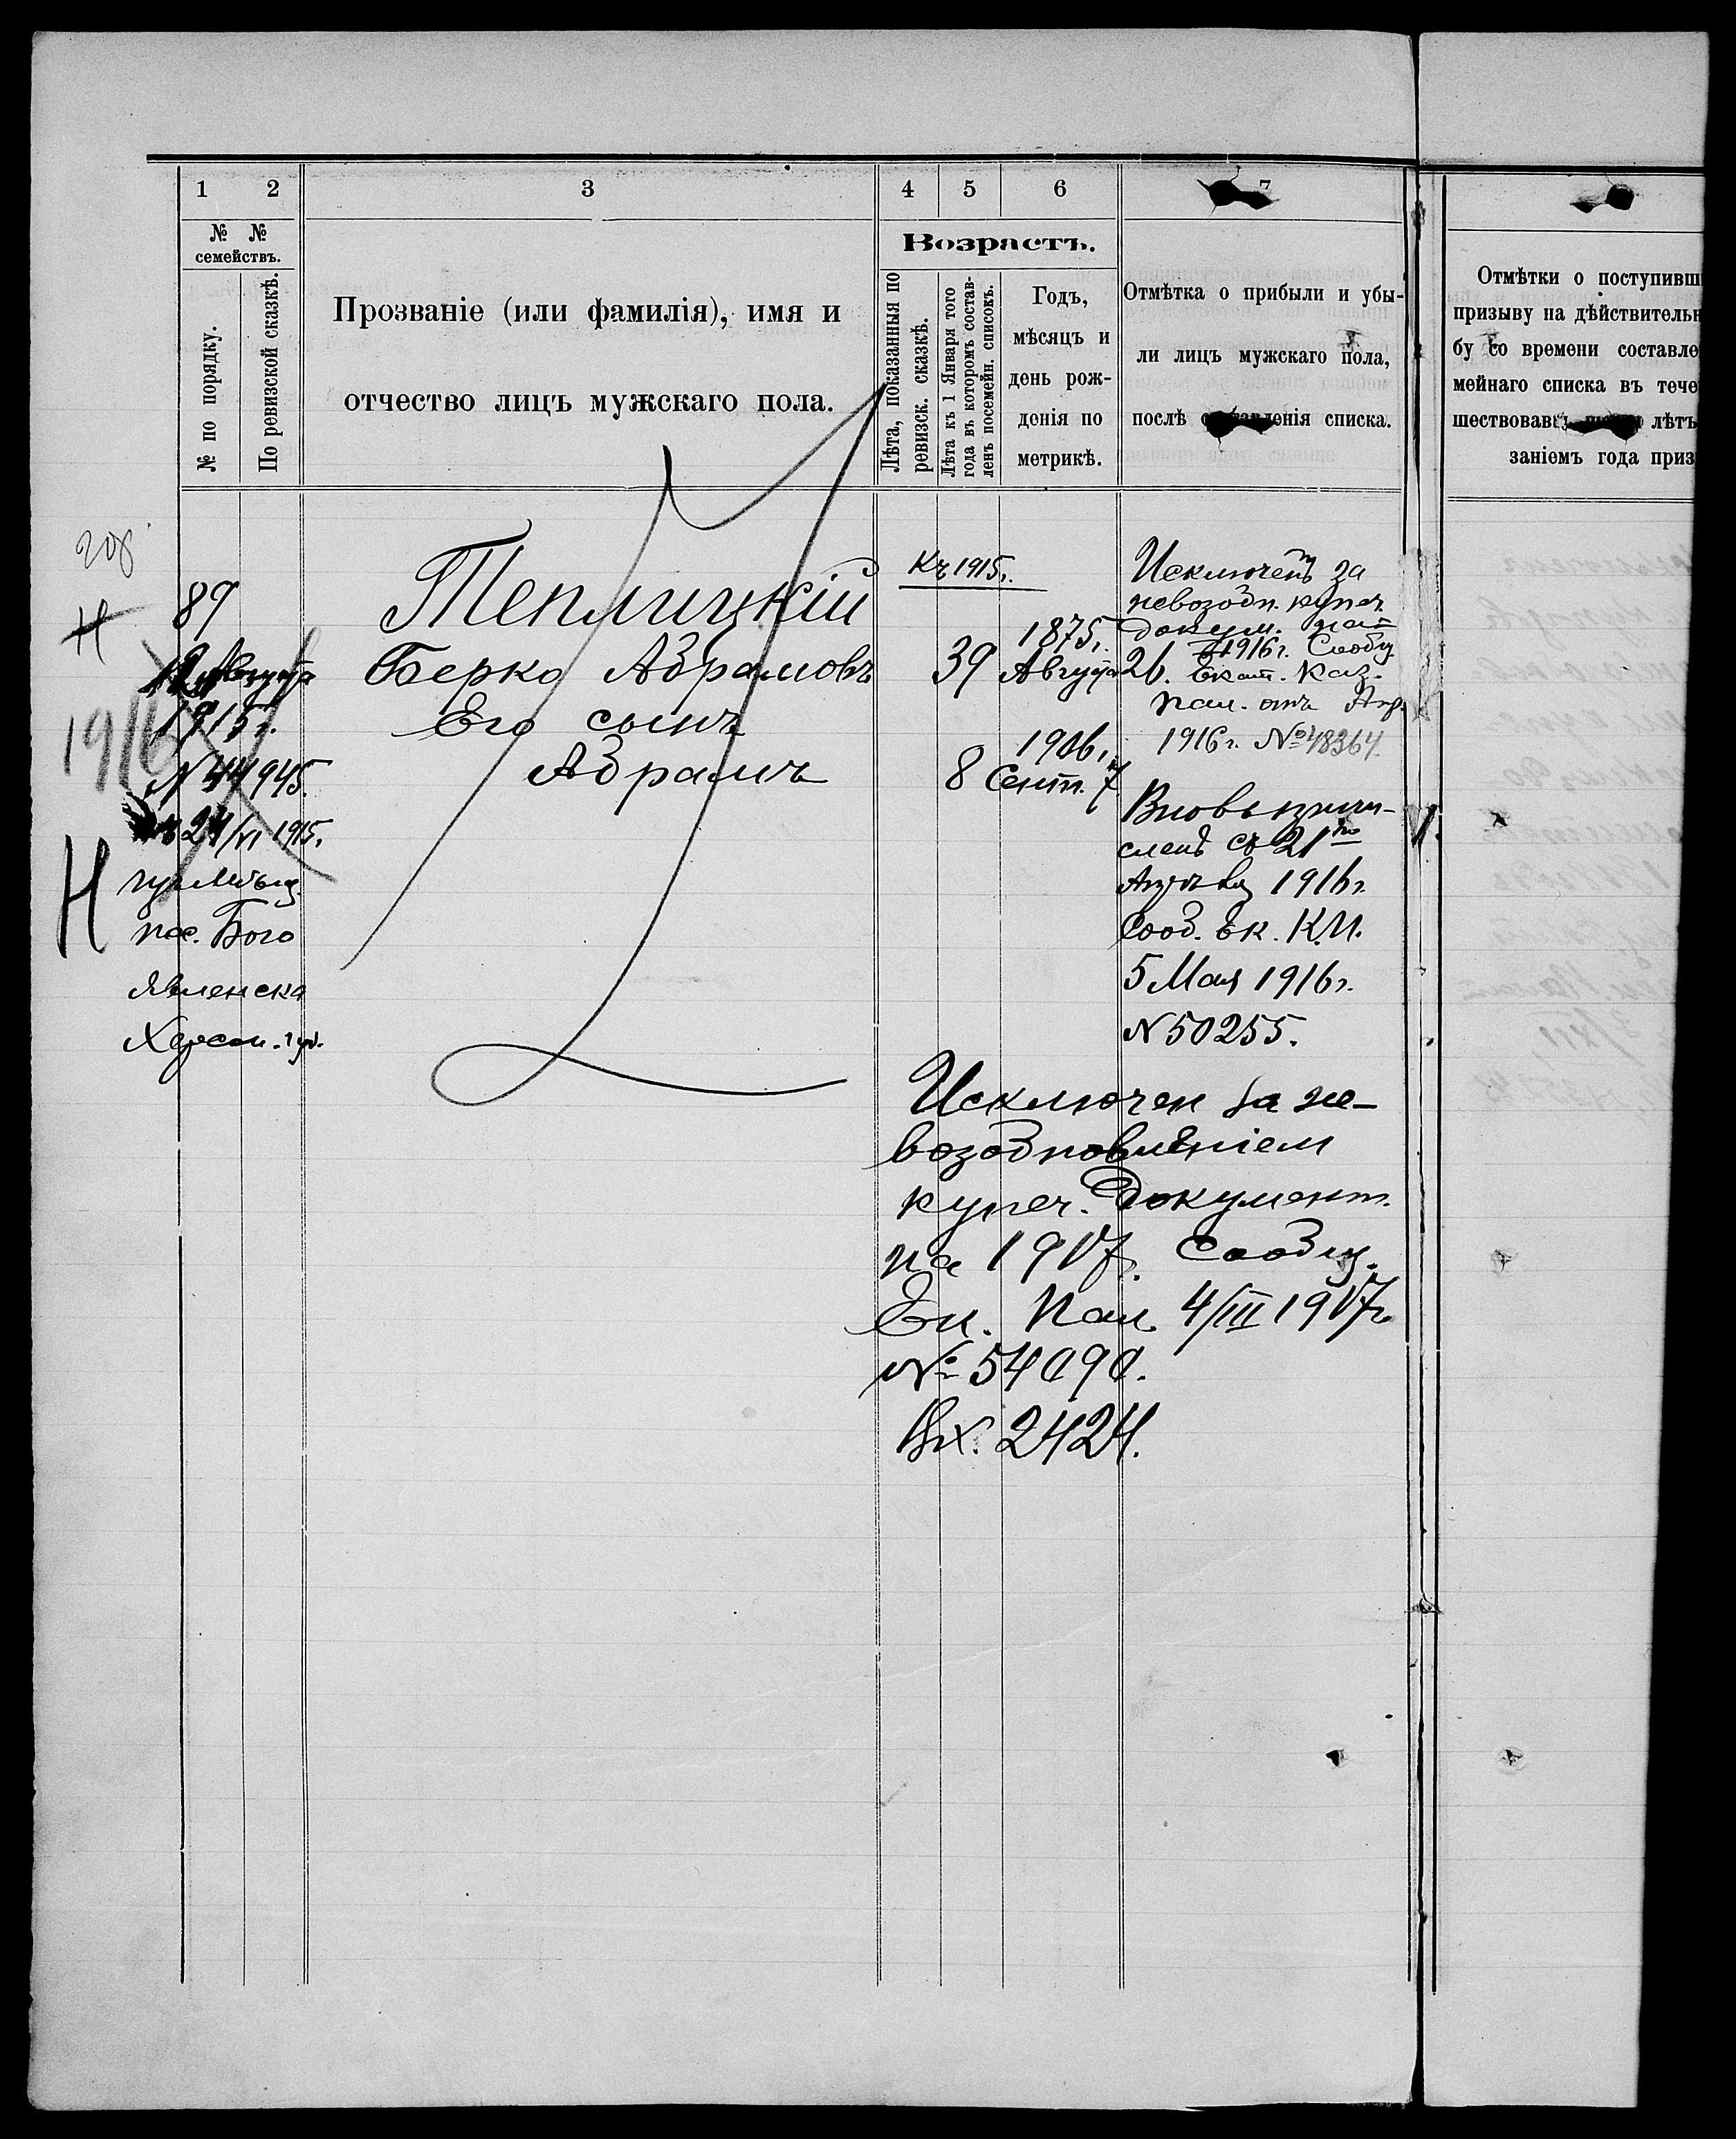 1 2 3 4 5 6 7
№ № семействъ.
№ по порядку.
По ревизской сказкѣ.
Прозваніе (или фамилія), имя и
отчество лицъ мужскаго пола.
Возрастъ.
Лѣта, показанныя по
ревизск. сказкѣ.
Лѣта къ 1 Января того
года въ которомъ состав-
ленъ посемейн. списокъ.
Годъ,
мѣсяцъ и
день рож-
денія по
метрикѣ.
Отмѣтка о прибыли и убы-
ли лицъ мужскаго пола,
послѣ составленія списка.
Отмѣтки о поступивш
призыву на дѣйствительн
бу со времени составле
мейнаго списка въ тече
шествовавш лѣтъ
заніемъ года приз
89
Н
Августа
1915 г.
1916
N 44945.
24/VI 1915.
Н
пос. Бого
явленска
Херсон. губ.
Теплицкій
Берко Абрамовъ
Его сынъ
Абрамъ
Къ 1915 г.
39
1875 г.
Августа 26.
8
1906 г.
Сент. 7
Исключенъ за
невозобн. купеч.
докум. на
1916 г. Сообщ.
Екат. Каз.
Пал. отъ Апр.
1916 г. № 48364.
Вновь причи-
сленъ съ 21го
1916 г.
Сооб. Ек. К.П.
5 Мая 1916 г.
N 50255.
Исключен за не-
возобновленіем
купеч. документ.
на 1917 г. Сообщ.
Ек. Пал. 4/III 1917 г.
№ 54090.
Вх. 2424.